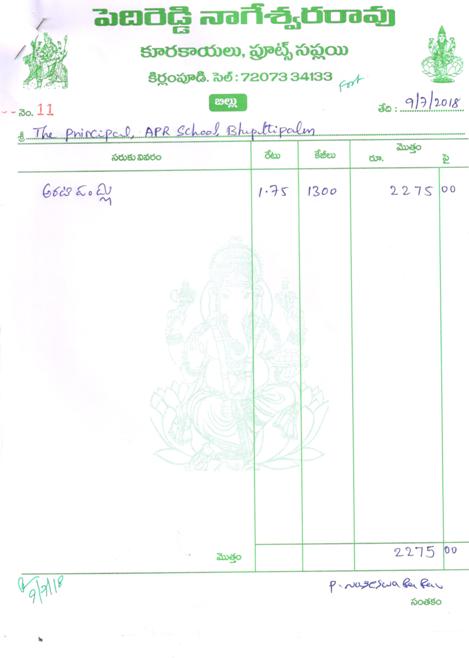 పెదిరెడ్డి నాగేశ్వరరావు
కూరకాయలు, ఫ్రూట్స్ సప్లయి
కిర్లంపూడి. సెల్ : 72073 34133
బిల్లు
నెం. 11
తేది : 9/7/2018
శ్రీ The Principal, APR School, Bhupttipalem
సరుకు వివరం రేటు కేజీలు మొత్తం
రూ. పై
అరటి పండ్లు 1.75 1300 2275 00
మొత్తం 2275 00
9/7/18
P. Nageswara Rao
సంతకం